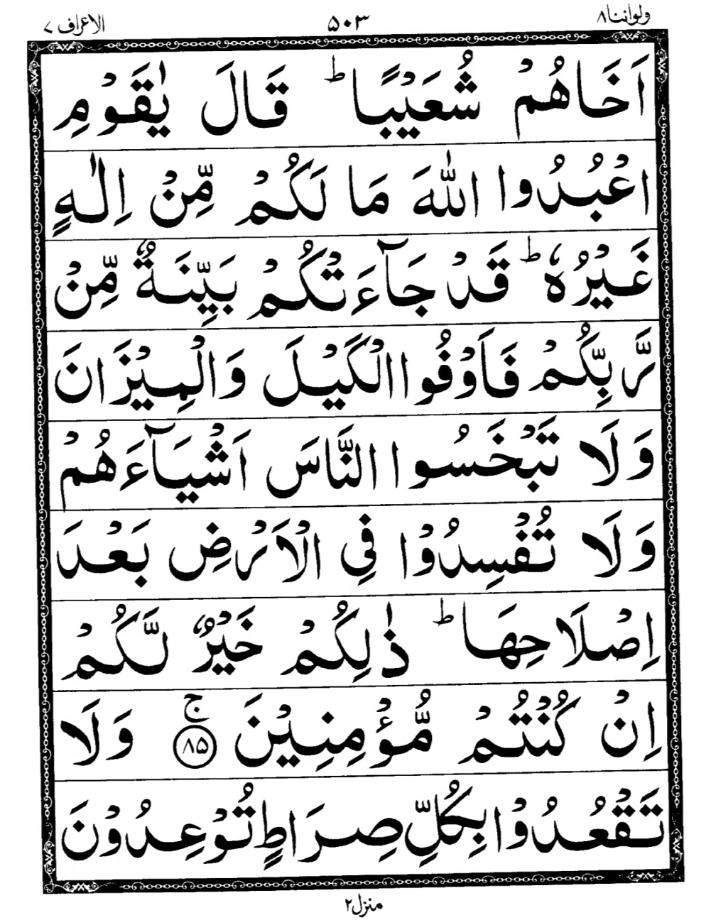 ولواننا۸ ۵۰۳ الاعراف ۷
اَخَاهُمْ شُعَيْبًا ؕ قَالَ يٰقَوْمِ
اعْبُدُوا اللهَ مَا لَكُمْ مِّنْ اِلٰهٍ
غَيْرُهٗ ؕ قَدْ جَآءَتْكُمْ بَيِّنَةٌ مِّنْ
رَّبِّكُمْ فَاَوْفُوا الْكَيْلَ وَالْمِيْزَانَ
وَلَا تَبْخَسُوا النَّاسَ اَشْيَآءَهُمْ
وَلَا تُفْسِدُوْا فِي الْاَرْضِ بَعْدَ
اِصْلَاحِهَا ؕ ذٰلِكُمْ خَيْرٌ لَّكُمْ
اِنْ كُنْتُمْ مُّؤْمِنِيْنَ ۚ ﴿۸۵﴾ وَلَا
تَقْعُدُوْا بِكُلِّ صِرَاطٍ تُوْعِدُوْنَ
منزل۲